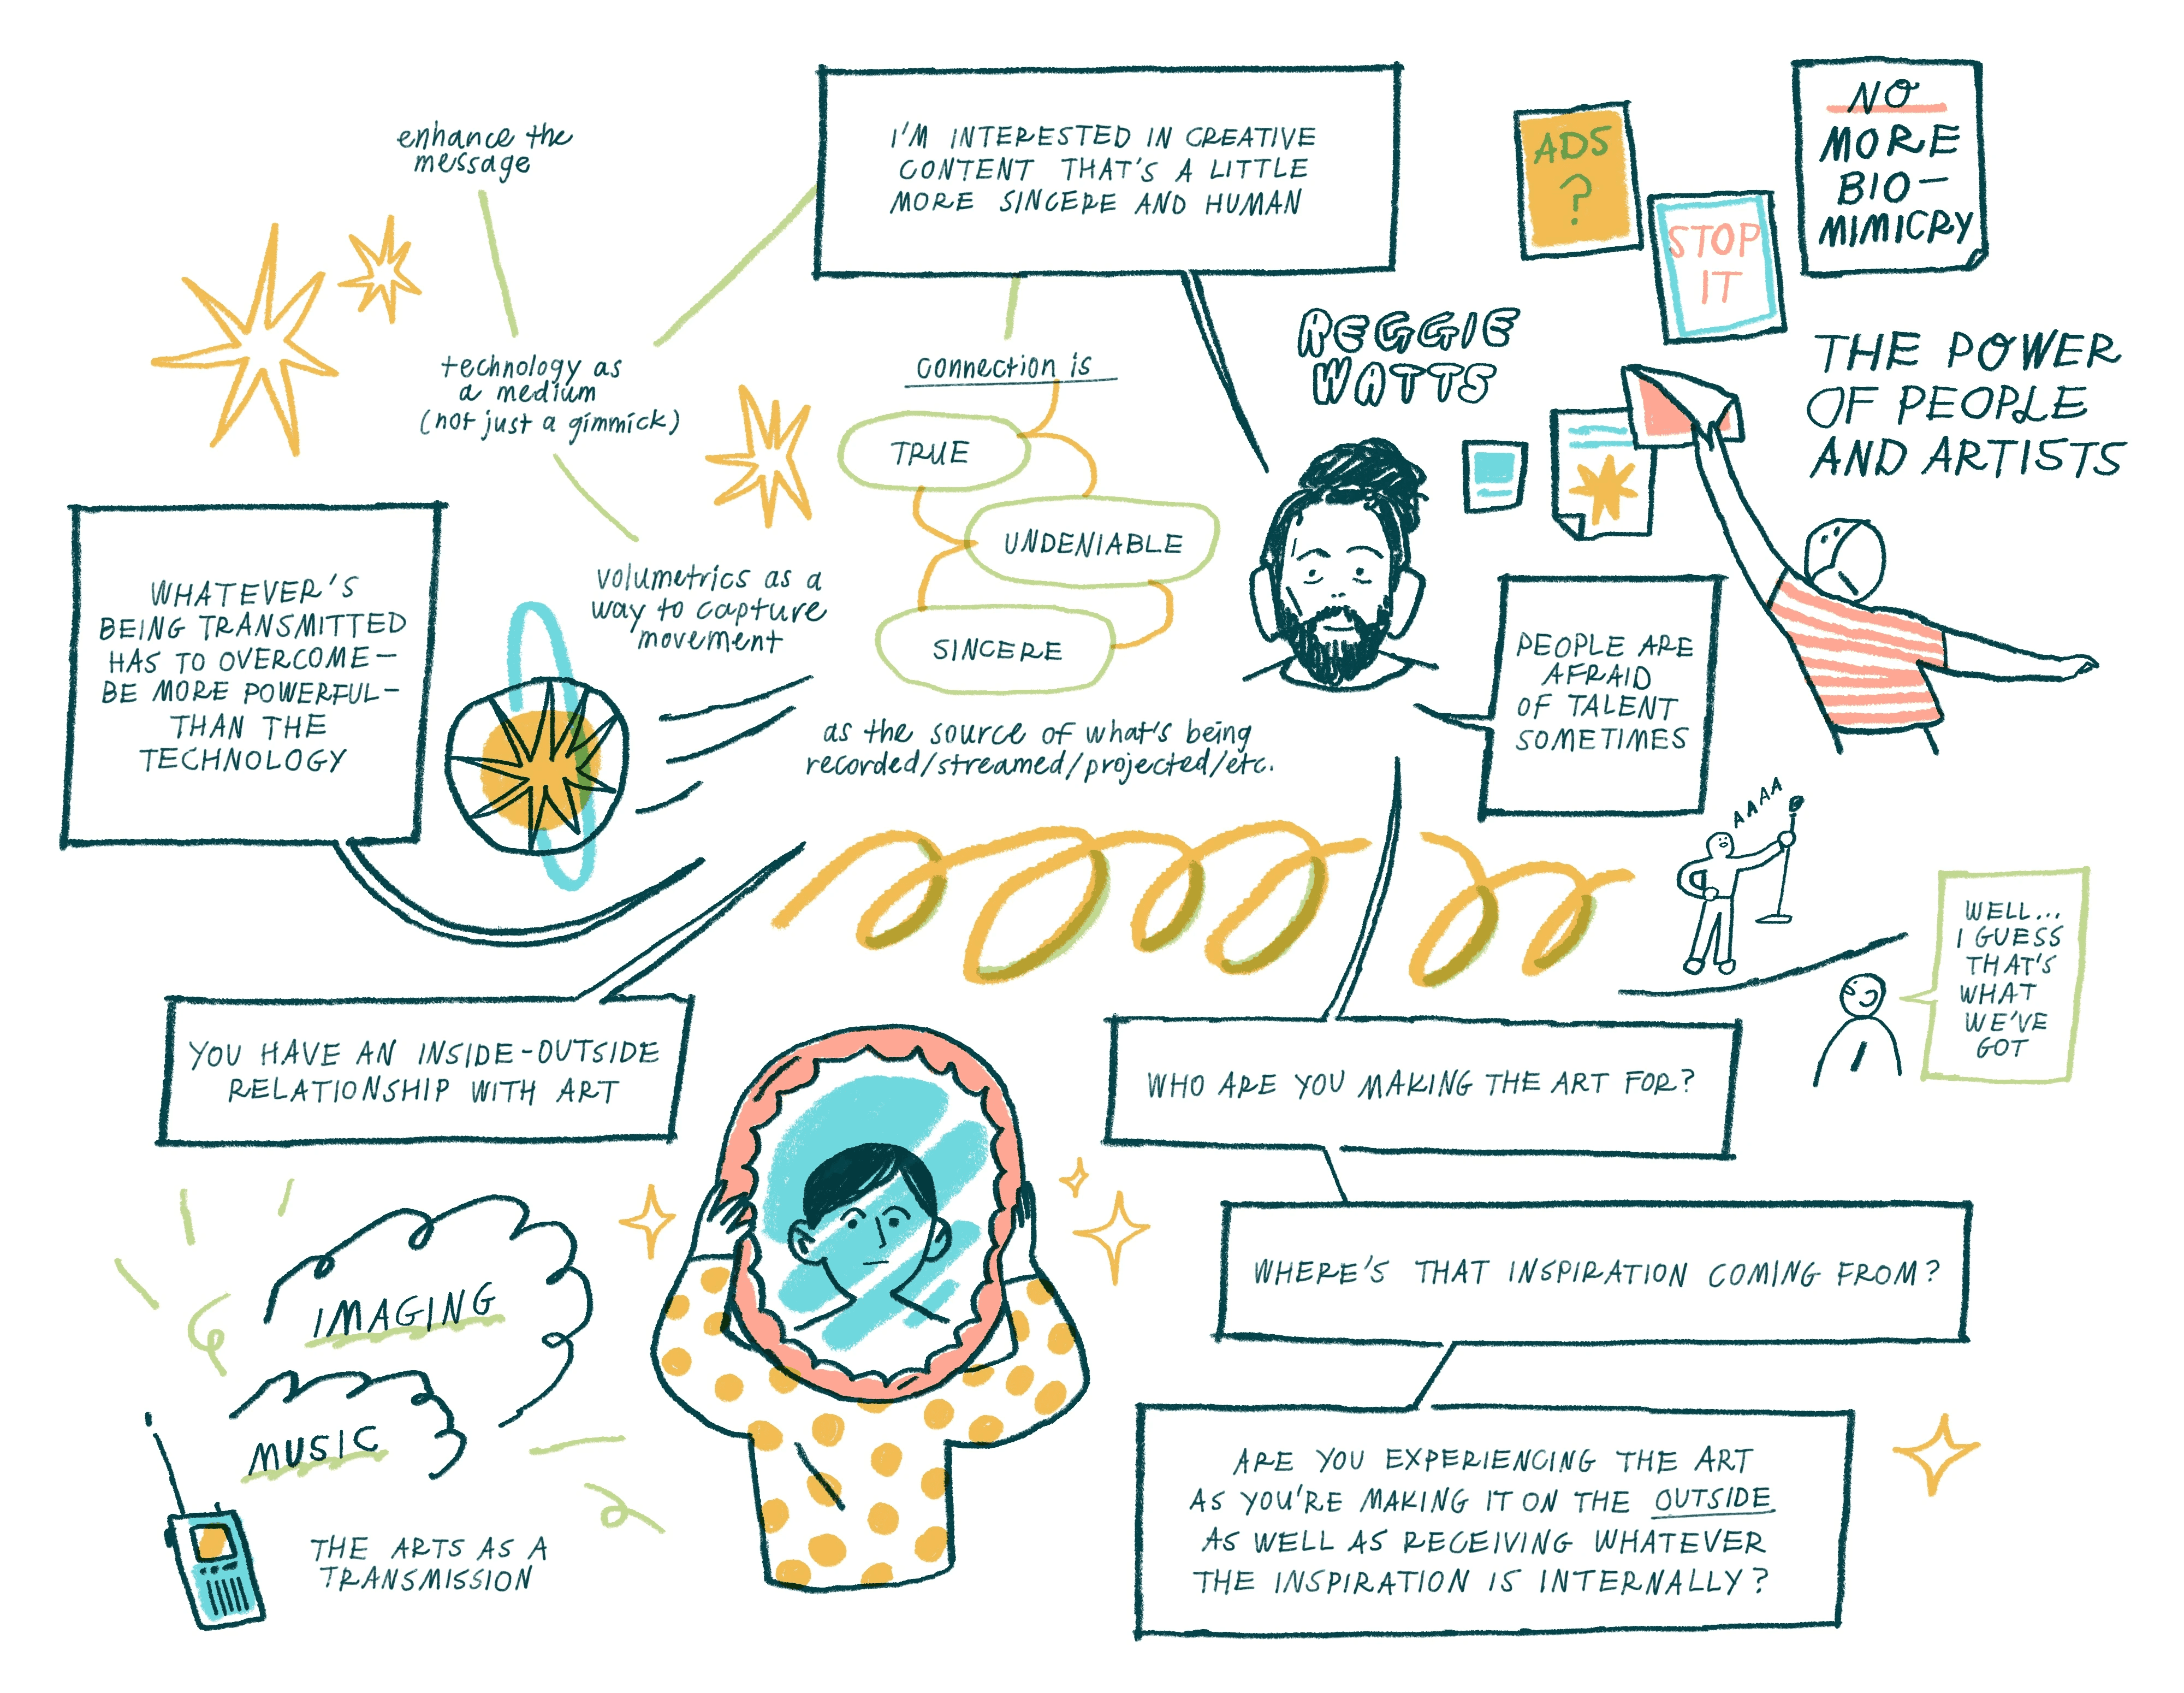 enhance the
message
technology as
a medium
(not just a gimmick)
volumetrics as a
way to capture
movement
I'M INTERESTED IN CREATIVE
CONTENT THAT'S A LITTLE
MORE SINCERE AND HUMAN
connection is
TRUE
UNDENIABLE
SINCERE
as the source of what's being
recorded/streamed/projected/etc.
REGGIE
WATTS
ADS
?
STOP
IT
NO
MORE
BIO-
MIMICRY
THE POWER
OF PEOPLE
AND ARTISTS
WHATEVER'S
BEING TRANSMITTED
HAS TO OVERCOME-
BE MORE POWERFUL-
THAN THE
TECHNOLOGY
PEOPLE ARE
AFRAID
OF TALENT
SOMETIMES
AAAA
WELL...
I GUESS
THAT'S
WHAT
WE'VE
GOT
YOU HAVE AN INSIDE-OUTSIDE
RELATIONSHIP WITH ART
WHO ARE YOU MAKING THE ART FOR?
WHERE'S THAT INSPIRATION COMING FROM?
ARE YOU EXPERIENCING THE ART
AS YOU'RE MAKING IT ON THE OUTSIDE
AS WELL AS RECEIVING WHATEVER
THE INSPIRATION IS INTERNALLY?
IMAGING
MUSIC
THE ARTS AS A
TRANSMISSION